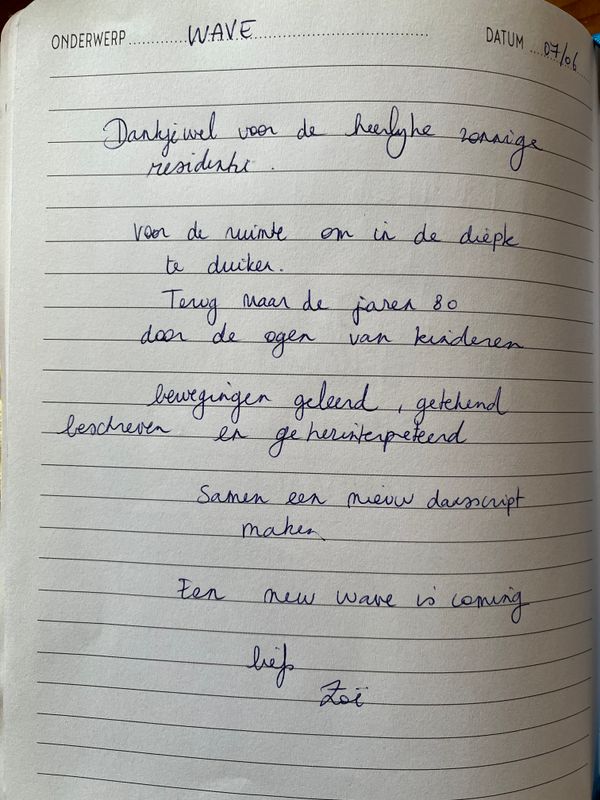 ONDERWERP WAVE DATUM 07/06
Dankjewel voor de heerlijke zonnige
residentie.
Voor de ruimte om in de diepte
te duiken.
Terug naar de jaren 80
door de ogen van kinderen
bewegingen geleerd, getekend
beschreven en geherinterpreteerd
Samen een nieuw dansscript
maken
Een new wave is coming
liefs
Zoë